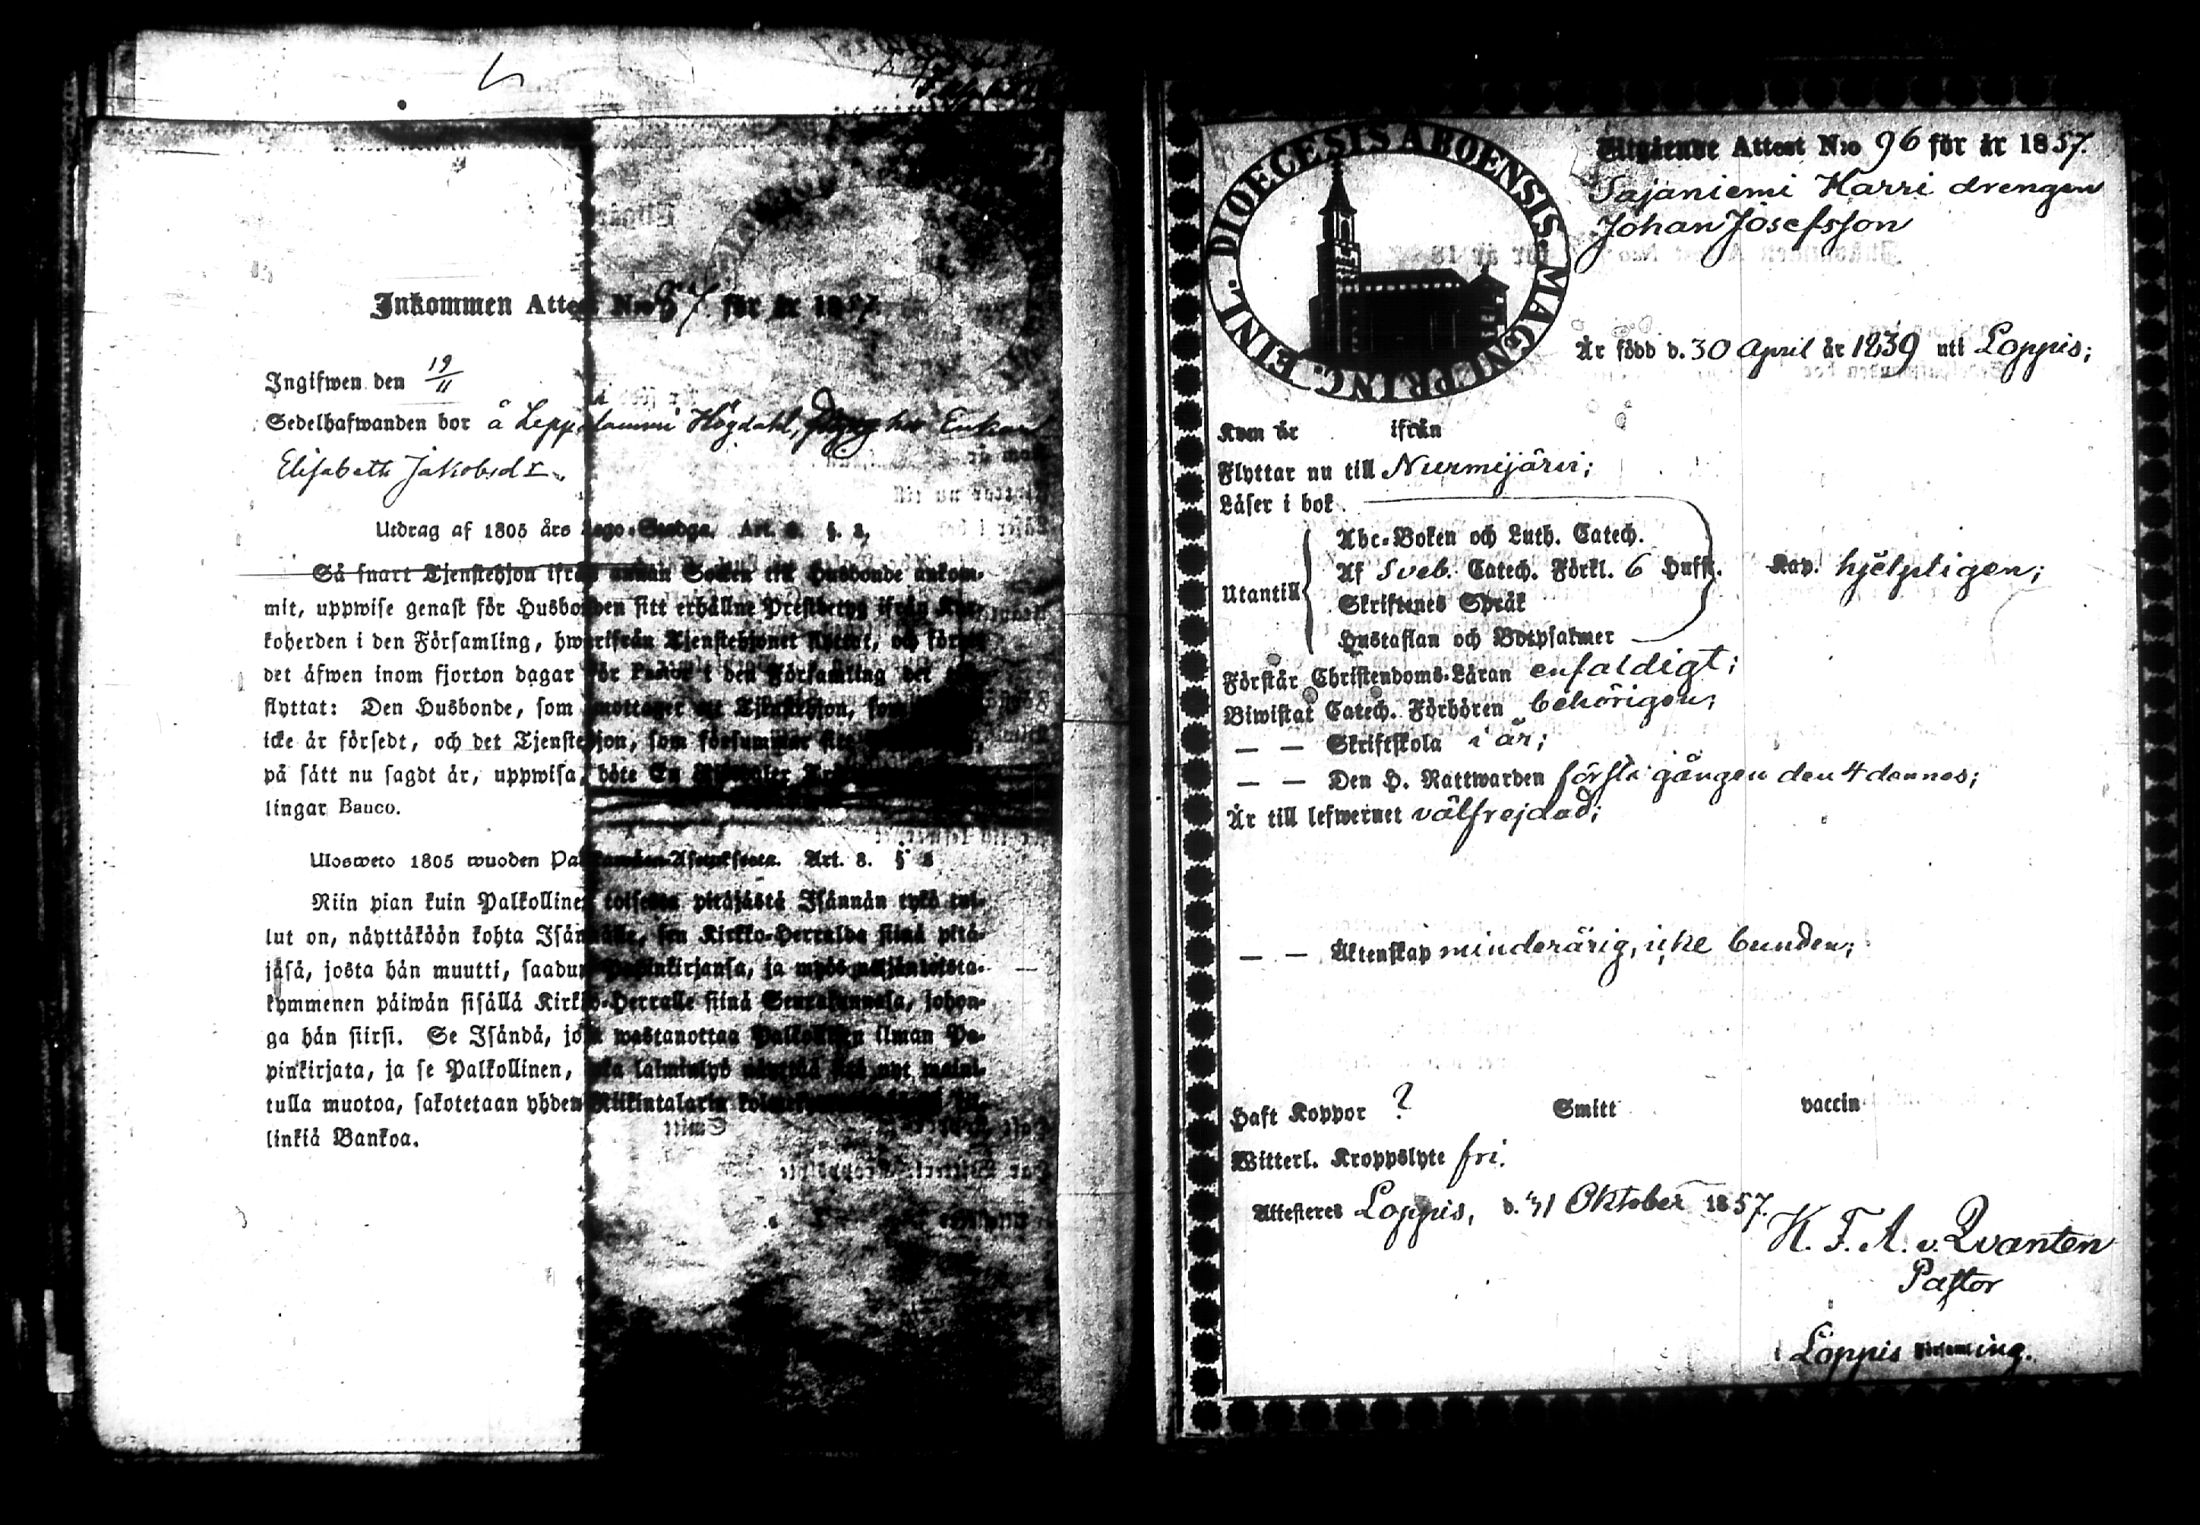 Inkommen Attest N:o 97 för år 1857.
Ingifwen den 19/11
Sedelhafwanden bor å Leppälammi Högdahl, dräng hos Enkan
Elisabeth Jakobsdr
Utdrag af 1805 års Lego-Stadga. Art. 8. §. 2.
Så snart Tjenstehjon ifrån annan Socken till Husbonde ankom-
mit, uppwise genast för Husbonden sitt erhållne Prestbetyg ifrån Kyr-
koherden i den Församling, hwarifrån Tjenstehjonet flyttat, och förete
det äfwen inom fjorton dagar för Pastor i den Församling det
flyttat: Den Husbonde, som mottager ett Tjenstehjon, som
icke är försedt, och det Tjenstehjon, som försummar
på sätt nu sagdt är, uppwisa, böte En Riksdaler
lingar Banco.
Ulosweto 1805 wuoden Palkkawäen-Asetuksesta. Art. 8. § 2
Niin pian kuin Palkollinen toisesta pitäjästä Isännän tykö tul-
lut on, näyttäköön kohta Isännälle, sen Kirkko-Herralda siinä pitä-
jäsä, josta hän muutti, saadun Papinkirjansa, ja myös neljäntoista-
kymmenen päiwän sisällä Kirkko-Herralle siinä Seurakunnasa, johon-
ga hän siirsi. Se Isändä, joka wastanottaa Palkollisen ilman Pa-
pinkirjata, ja se Palkollinen, joka laiminlyö näyttää sitä nyt maini-
tulla muotoa, sakotetaan yhden Riikintalarin
linkiä Bankoa.
DIOECESIS ABOENSIS. MAGNI PRINC. FINL.
Utgående Attest N:o 96 för år 1857.
Sajaniemi Harri drengen
Johan Josefsson
Är född d. 30 April år 1839 uti Loppis;
Kom år ifrån
Flyttar nu till Nurmijärvi;
Läser i bok
Abc-Boken och Luth. Catech.
Utantill Af Sveb. Catech. Förkl. 6 Hufst. Kap. hjelpligen;
Skriftenes Språk
Hustaflan och Botpsalmer
Förstår Christendoms-Läran enfaldigt;
Biwistat Catech. Förhören behörigen;
— — Skriftskola i år;
— — Den H. Nattwarden första gången den 4 dennes;
Är till lefwernet välfrejdad;
— — Äktenskap minderårig, icke bunden;
Haft Koppor ? Smitt vaccin
Witterl. Kroppslyte fri.
Attesteres Loppis, d. 31 Oktober 1857.
K. F. A. v. Qvanten
Pastor
i Loppis Församling.